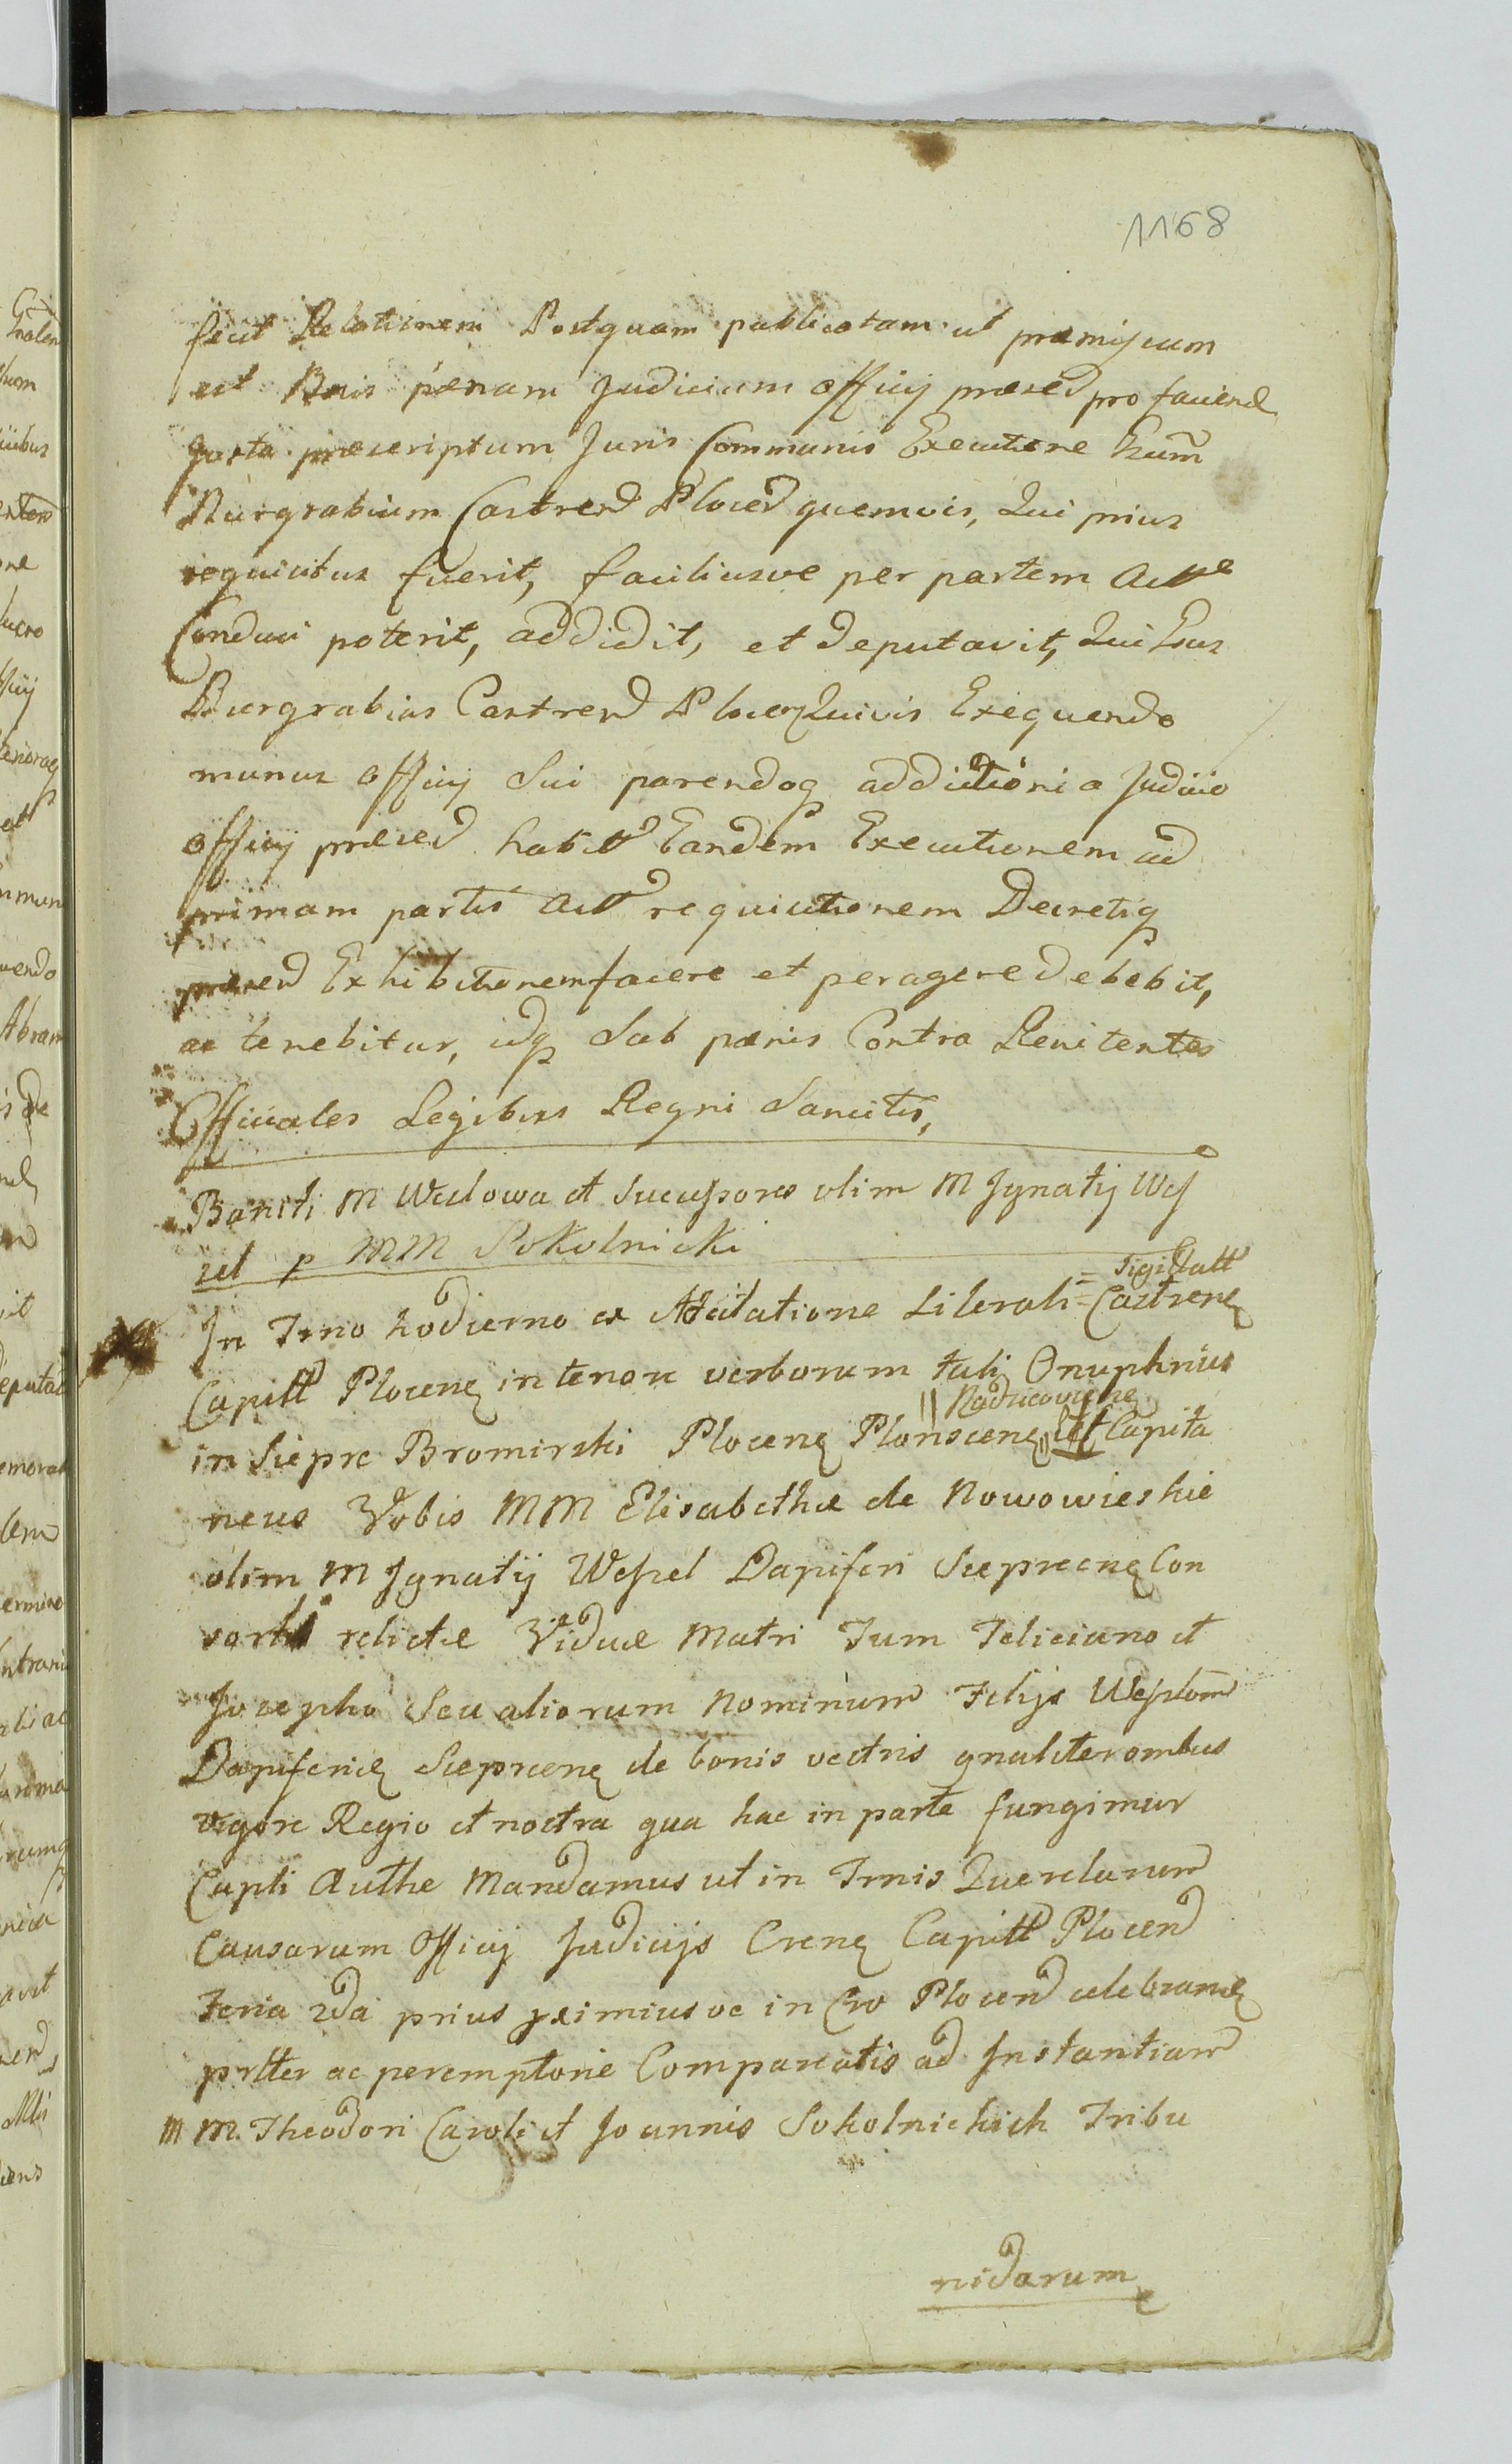 1168
fecit Relationem Postquam publicatam ut præmissum
est Bnis pænam Judicium officij præsed pro faciend
juxta præscriptum Juris Communis Executione Gnum
Burgrabium Castren Plocen quemvis, qui prius
requisitus fuerit, faciliusve per partem Actte
Conduci poterit, addidit, et deputavit, qui Gnus
Burgrabius Castren Plocen quivis Exequendo
munus officij sui parendoq addictioni a Judicio
officij præsed habitt Eandem Executionem ad
primam partis Actt requisitionem Decretiq
præsed Exhibitionem facere et peragere debebit,
ac tenebitur, idq sub pænis Contra Renitentes
Officiales Legibus Regni Sancitis,
Baniti M Weslowa et Sucessores olim M Ignatij Wes
sel p MM Sokolnicki
In Trno hodierno ex Adcitatione Literali = Castrene
= sigillatt
Capitt Plocene in tenore verborum tali Onuphrius
in Siepre Bromirski Plocene Plonscene et Capita
|| Radziecoviene
neus Vobis MM Elisabethæ de Nowowieskie
olim M Ignatij Wessel Dapiferi Sieprcene Con
sorti relictæ Viduæ Matri Tum Feliciano et
Josepho Seu aliorum nominum Filijs Weslom
Dapiferid Sieprcene de bonis vestris gnaliter ombus
vigore Regio et nostra qua hac in parte fungimur
Capli Authe Mandamus ut in Trnis Querelarum
Causarum Officij Judicijs Crene Capitt Plocen
Feria 2da prius proximiusve in Cro Plocen celebrand
prltter ac peremptorie Compareatis ad Instantiam
MM. Theodori Caroli et Joannis Sokolnickich Tribu
nidarum